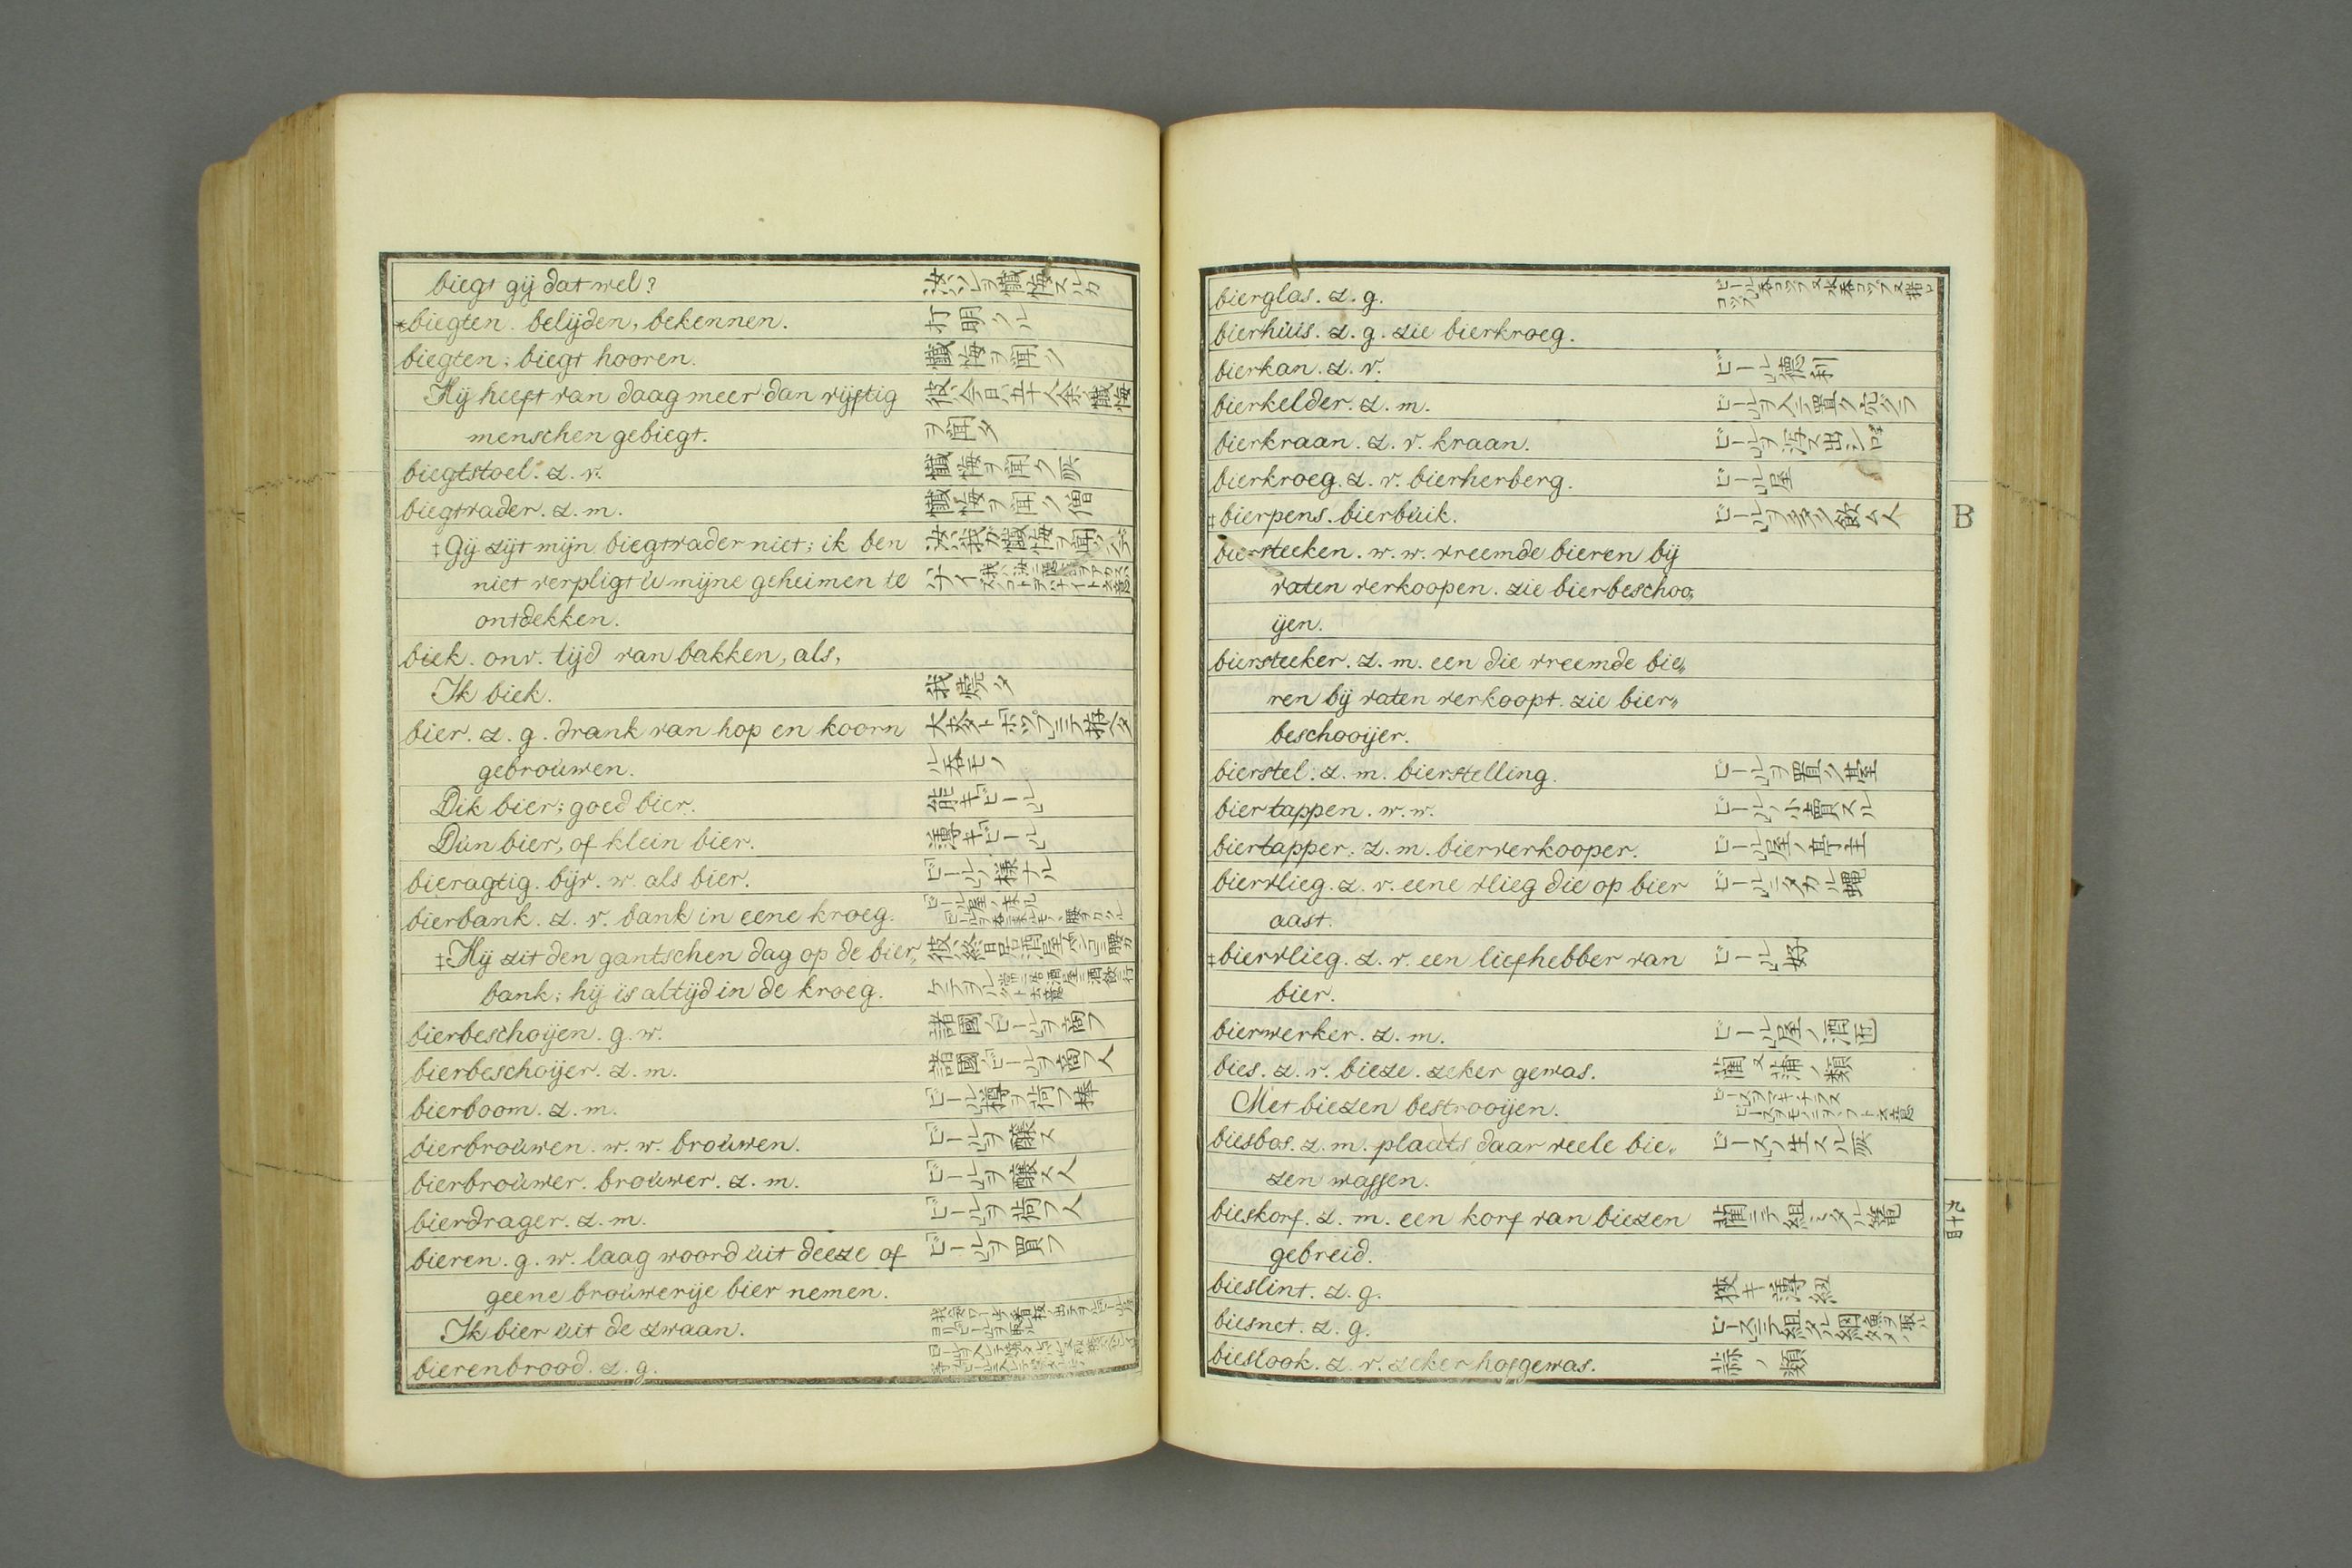 biegt gij dat wel? 汝ハソレヲ懺悔スルカ
*biegten. belijden, bekennen. 打明クル
biegten; biegt hooren. 懺悔ヲ聞ク
Hij heeft van daag meer dan vijftig 彼ハ今日五十人余ノ懺悔
menschen gebiegt. ヲ聞タ
biegtstoel. z. v. 懺悔ヲ聞ク所
biegtvader. z. m. 懺悔ヲ聞ク僧
‡Gij zijt mijn biegtvader niet; ik ben 汝ハ我カ懺悔ヲ聞ク
niet verpligt ú mijne geheimen te
ontdekken.
biek. onv. tijd van bakken, als,
Ik biek. 我焼タ
bier. z. g. drank van hop en koorn 大麦トホップニテ拵ヘタ
gebroúwen. ル呑モノ
Dik bier; goed bier. 能キビール
Dún bier, of klein bier. 薄キビール
bieragtig. bijv. w. als bier. ビールノ様ナル
bierbank. z. v. bank in eene kroeg. ビール屋ノ床几
‡Hij zit den gantschen dag op de bier„ 彼ハ終日居酒屋ノ
bank; hij is altijd in de kroeg.
bierbeschoijen. g. w. 諸國ノビールヲ商フ
bierbeschoijer. z. m. 諸國ノビールヲ商フ人
bierboom. z. m. ビール樽ヲ荷フ棒
bierbroúwen. w. w. broúwen. ビールヲ醸ス
bierbroúwer. broúwer. z. m. ビールヲ醸ス人
bierdrager. z. m. ビールヲ荷フ人
bieren. g. w. laag woord úit deeze of ビールヲ買フ
geene broúwerije bier nemen.
Ik bier úit de zwaan.
bierenbrood. z. g.
bierglas. z. g.
bierhúis. z. g. zie bierkroeg.
bierkan. z. v. ビール徳利
bierkelder. z. m. ビールヲ入テ置ク穴グラ
bierkraan. z. v. kraan.
bierkroeg. z. v. bierherberg. ビール屋
‡bierpens. bierbúik. ビールヲ多ク飲ム人
biersteeken. w. w. vreemde bieren bij
vaten verkoopen. zie bierbeschoo„
ijen.
biersteeker. z. m. een die vreemde bie„
ren bij vaten verkoopt. zie bier„
beschooijer.
bierstel. z. m. bierstelling. ビールヲ置ク䑓
biertappen. w. w. ビールノ小賣スル
biertapper. z. m. bierverkooper. ビール屋ノ亭主
biervlieg. z. v. eene vlieg die op bier ビールニタカル蠅
aast.
‡biervlieg. z. v. een liefhebber van ビール好
bier.
bierwerker. z. m. ビール屋ノ酒匠
bies. z. v. bieze. zeker gewas. 藺又蒲ノ類
Met biezen bestrooijen.
biesbos. z. m. plaats daar veele bie„ ビースノ生スル所
zen wassen.
bieskorf. z. m. een korf van biezen 藺ニテ組ミタル篭
gebreid.
bieslint. z. g. 狭キ薄紐
biesnet. z. g.
bieslook. z. v. zeker hofgewas. 蒜ノ類
B
九十四